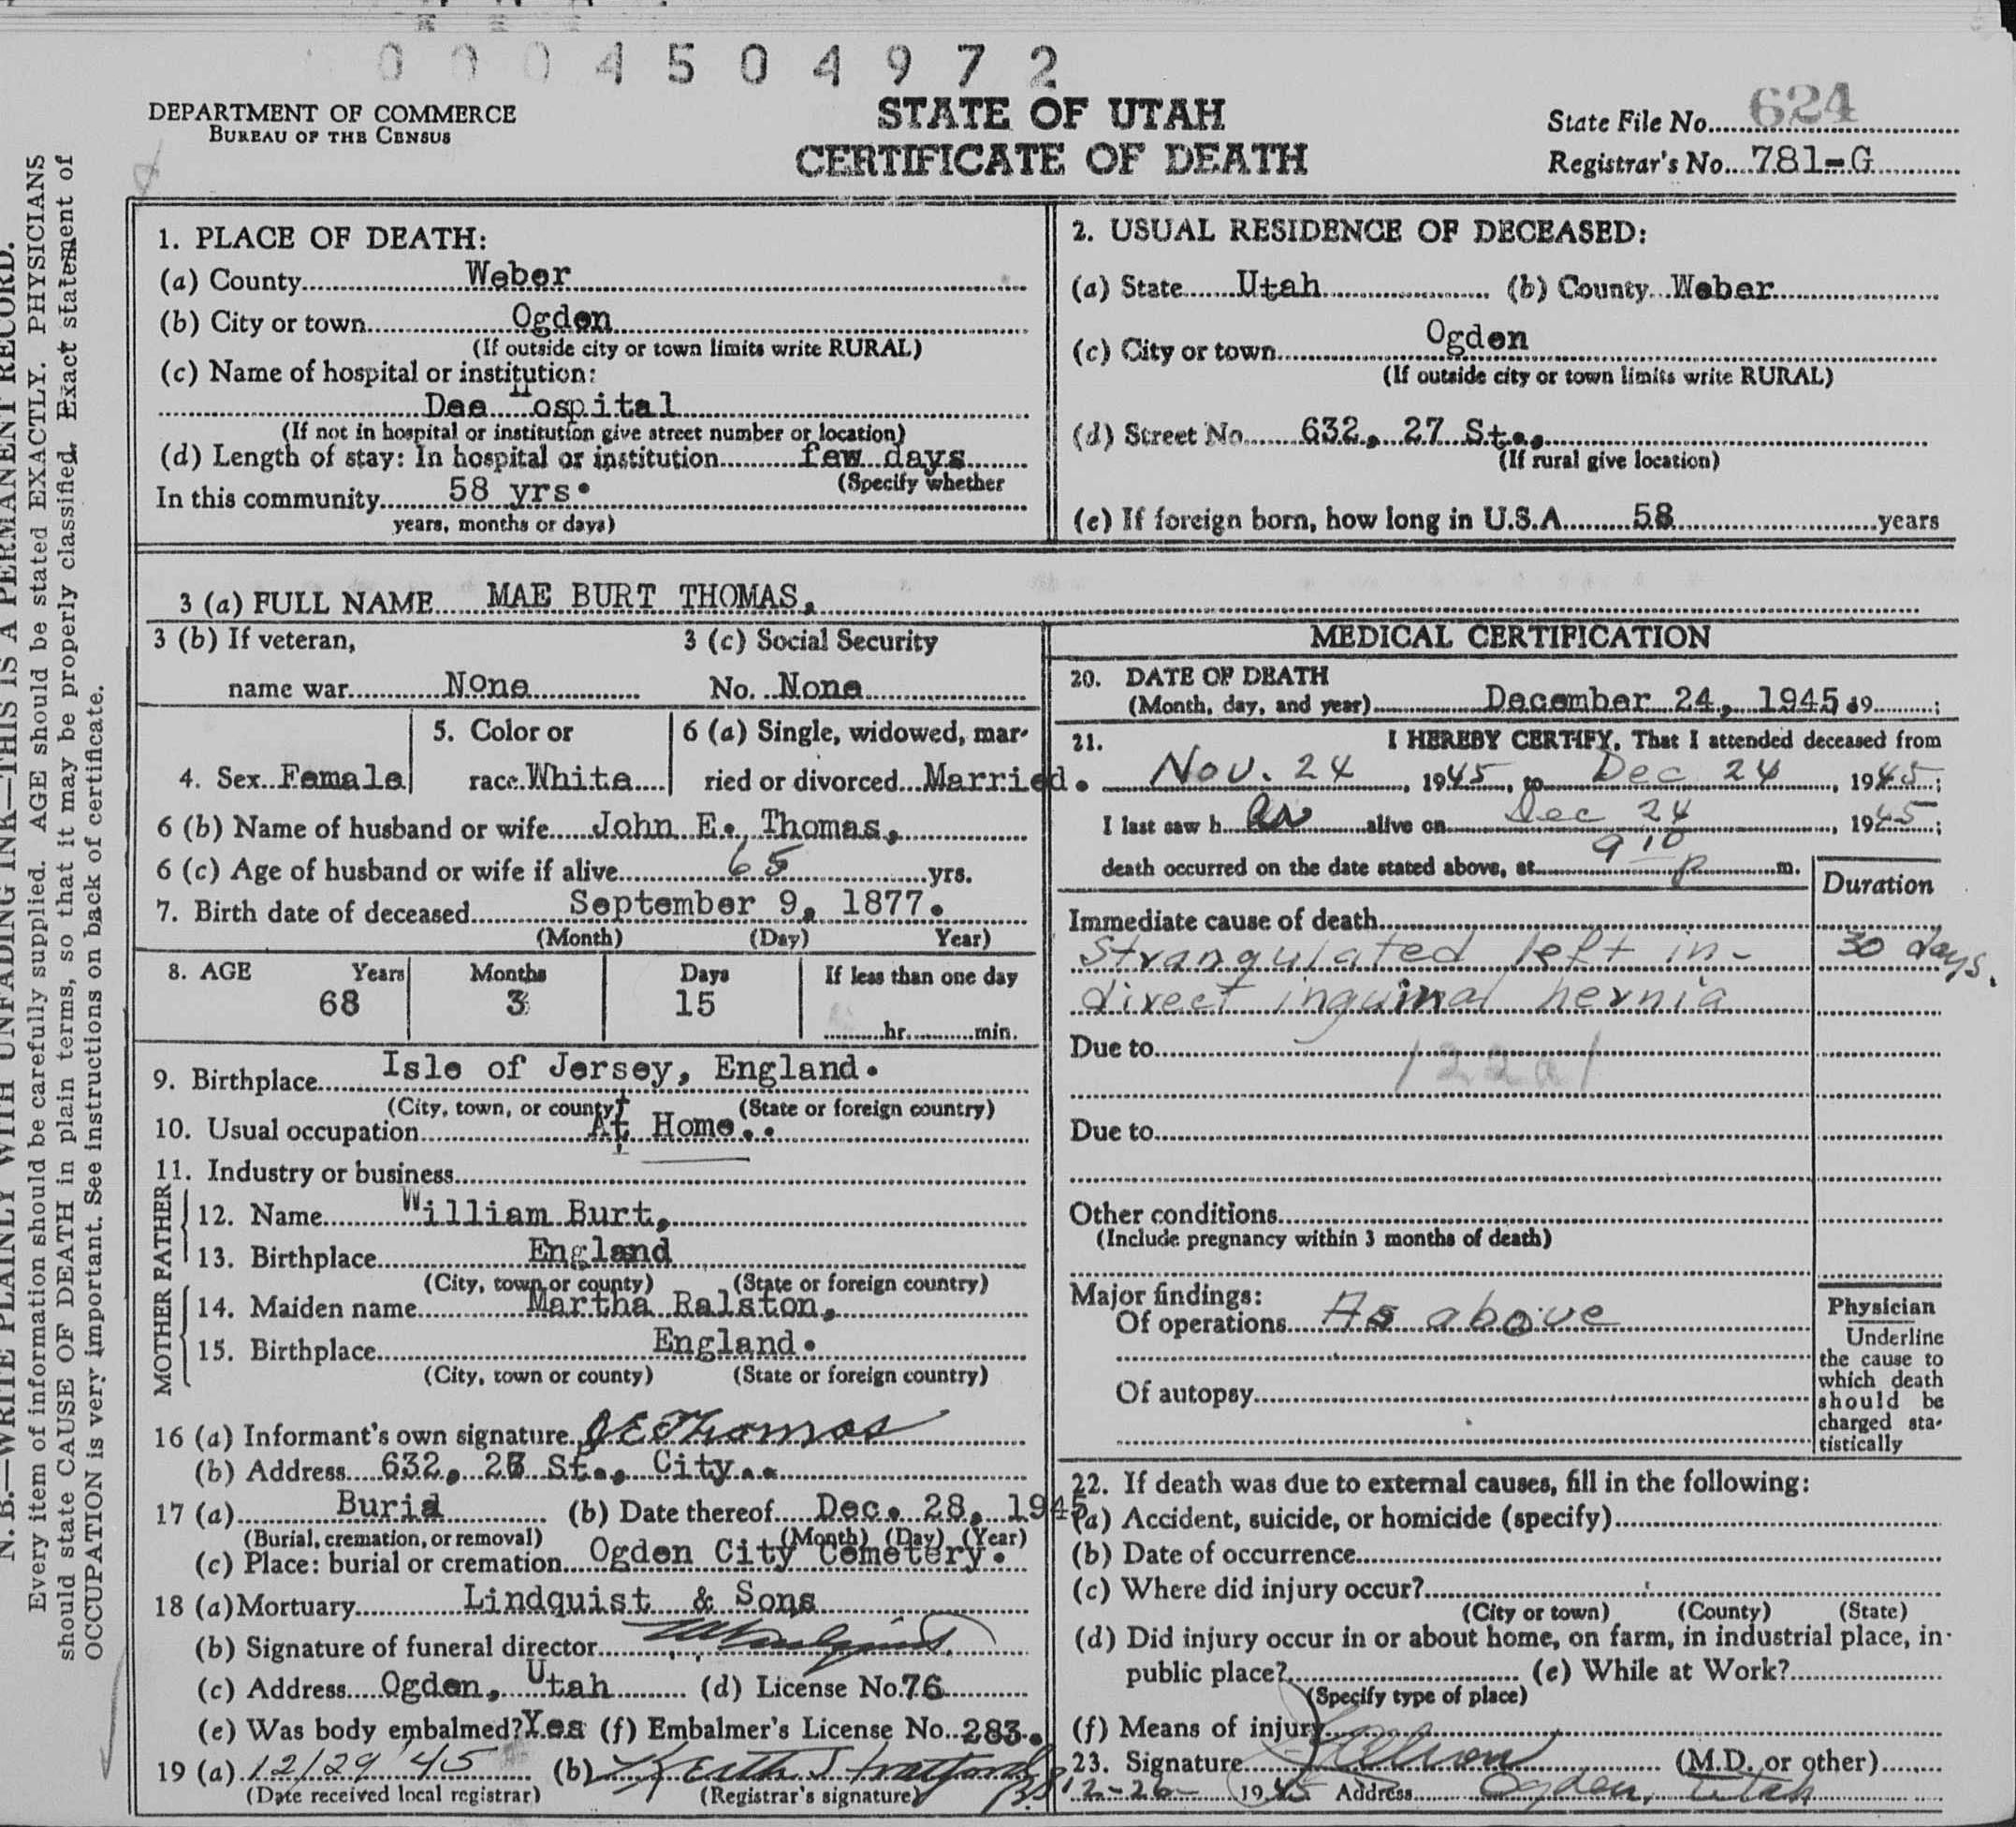 0004504972
DEPARTMENT OF COMMERCE
BUREAU OF THE CENSUS
STATE OF UTAH
CERTIFICATE OF DEATH
State File No. 624
Registrar's No. 781-G
N. B.—WRITE PLAINLY WITH UNFADING INK—THIS IS A PERMANENT RECORD.
Every item of information should be carefully supplied. AGE should be stated EXACTLY. PHYSICIANS
should state CAUSE OF DEATH in plain terms, so that it may be properly classified. Exact statement of
OCCUPATION is very important. See instructions on back of certificate.
1. PLACE OF DEATH:
(a) County Weber
(b) City or town Ogden
(If outside city or town limits write RURAL)
(c) Name of hospital or institution:
Dee Hospital
(If not in hospital or institution give street number or location)
(d) Length of stay: In hospital or institution few days
(Specify whether
In this community 58 yrs.
years, months or days)
2. USUAL RESIDENCE OF DECEASED:
(a) State Utah (b) County Weber
(c) City or town Ogden
(If outside city or town limits write RURAL)
(d) Street No. 632, 27 St.,
(If rural give location)
(e) If foreign born, how long in U.S.A. 58 years
3 (a) FULL NAME MAE BURT THOMAS,
3 (b) If veteran,
name war None
3 (c) Social Security
No. None
4. Sex Female
5. Color or
race White
6 (a) Single, widowed, mar-
ried or divorced Married.
6 (b) Name of husband or wife John E. Thomas,
6 (c) Age of husband or wife if alive 65 yrs.
7. Birth date of deceased September 9, 1877.
(Month) (Day) Year)
8. AGE Years Months Days If less than one day
68 3 15 hr. min.
9. Birthplace Isle of Jersey, England.
(City, town, or county) (State or foreign country)
10. Usual occupation At Home..
11. Industry or business
FATHER
12. Name William Burt,
13. Birthplace England
(City, town or county) (State or foreign country)
MOTHER
14. Maiden name Martha Ralston,
15. Birthplace England.
(City, town or county) (State or foreign country)
16 (a) Informant's own signature J E Thomas
(b) Address 632, 27 St., City..
17 (a) Burial (b) Date thereof Dec. 28, 1945
(Burial, cremation, or removal) (Month) (Day) (Year)
(c) Place: burial or cremation Ogden City Cemetery.
18 (a) Mortuary Lindquist & Sons
(b) Signature of funeral director
(c) Address Ogden, Utah (d) License No. 76
(e) Was body embalmed? Yes (f) Embalmer's License No. 283.
19 (a) 12/29 '45 (b)
(Date received local registrar) (Registrar's signature)
MEDICAL CERTIFICATION
20. DATE OF DEATH
(Month, day, and year) December 24, 1945 19 ;
21. I HEREBY CERTIFY, That I attended deceased from
Nov. 24, 1945, to Dec 24, 1945;
I last saw h er alive on Dec 24, 1945;
death occurred on the date stated above, at 9 10 p m.
Duration
Immediate cause of death
Strangulated left in- 30 days.
direct inguinal hernia
Due to
Due to
Other conditions
(Include pregnancy within 3 months of death)
Major findings:
Of operations As above
Of autopsy
Physician
Underline
the cause to
which death
should be
charged sta-
tistically
22. If death was due to external causes, fill in the following:
(a) Accident, suicide, or homicide (specify)
(b) Date of occurrence
(c) Where did injury occur?
(City or town) (County) (State)
(d) Did injury occur in or about home, on farm, in industrial place, in
public place? (e) While at Work?
(Specify type of place)
(f) Means of injury
23. Signature (M.D. or other)
12-26- 1945 Address Ogden, Utah